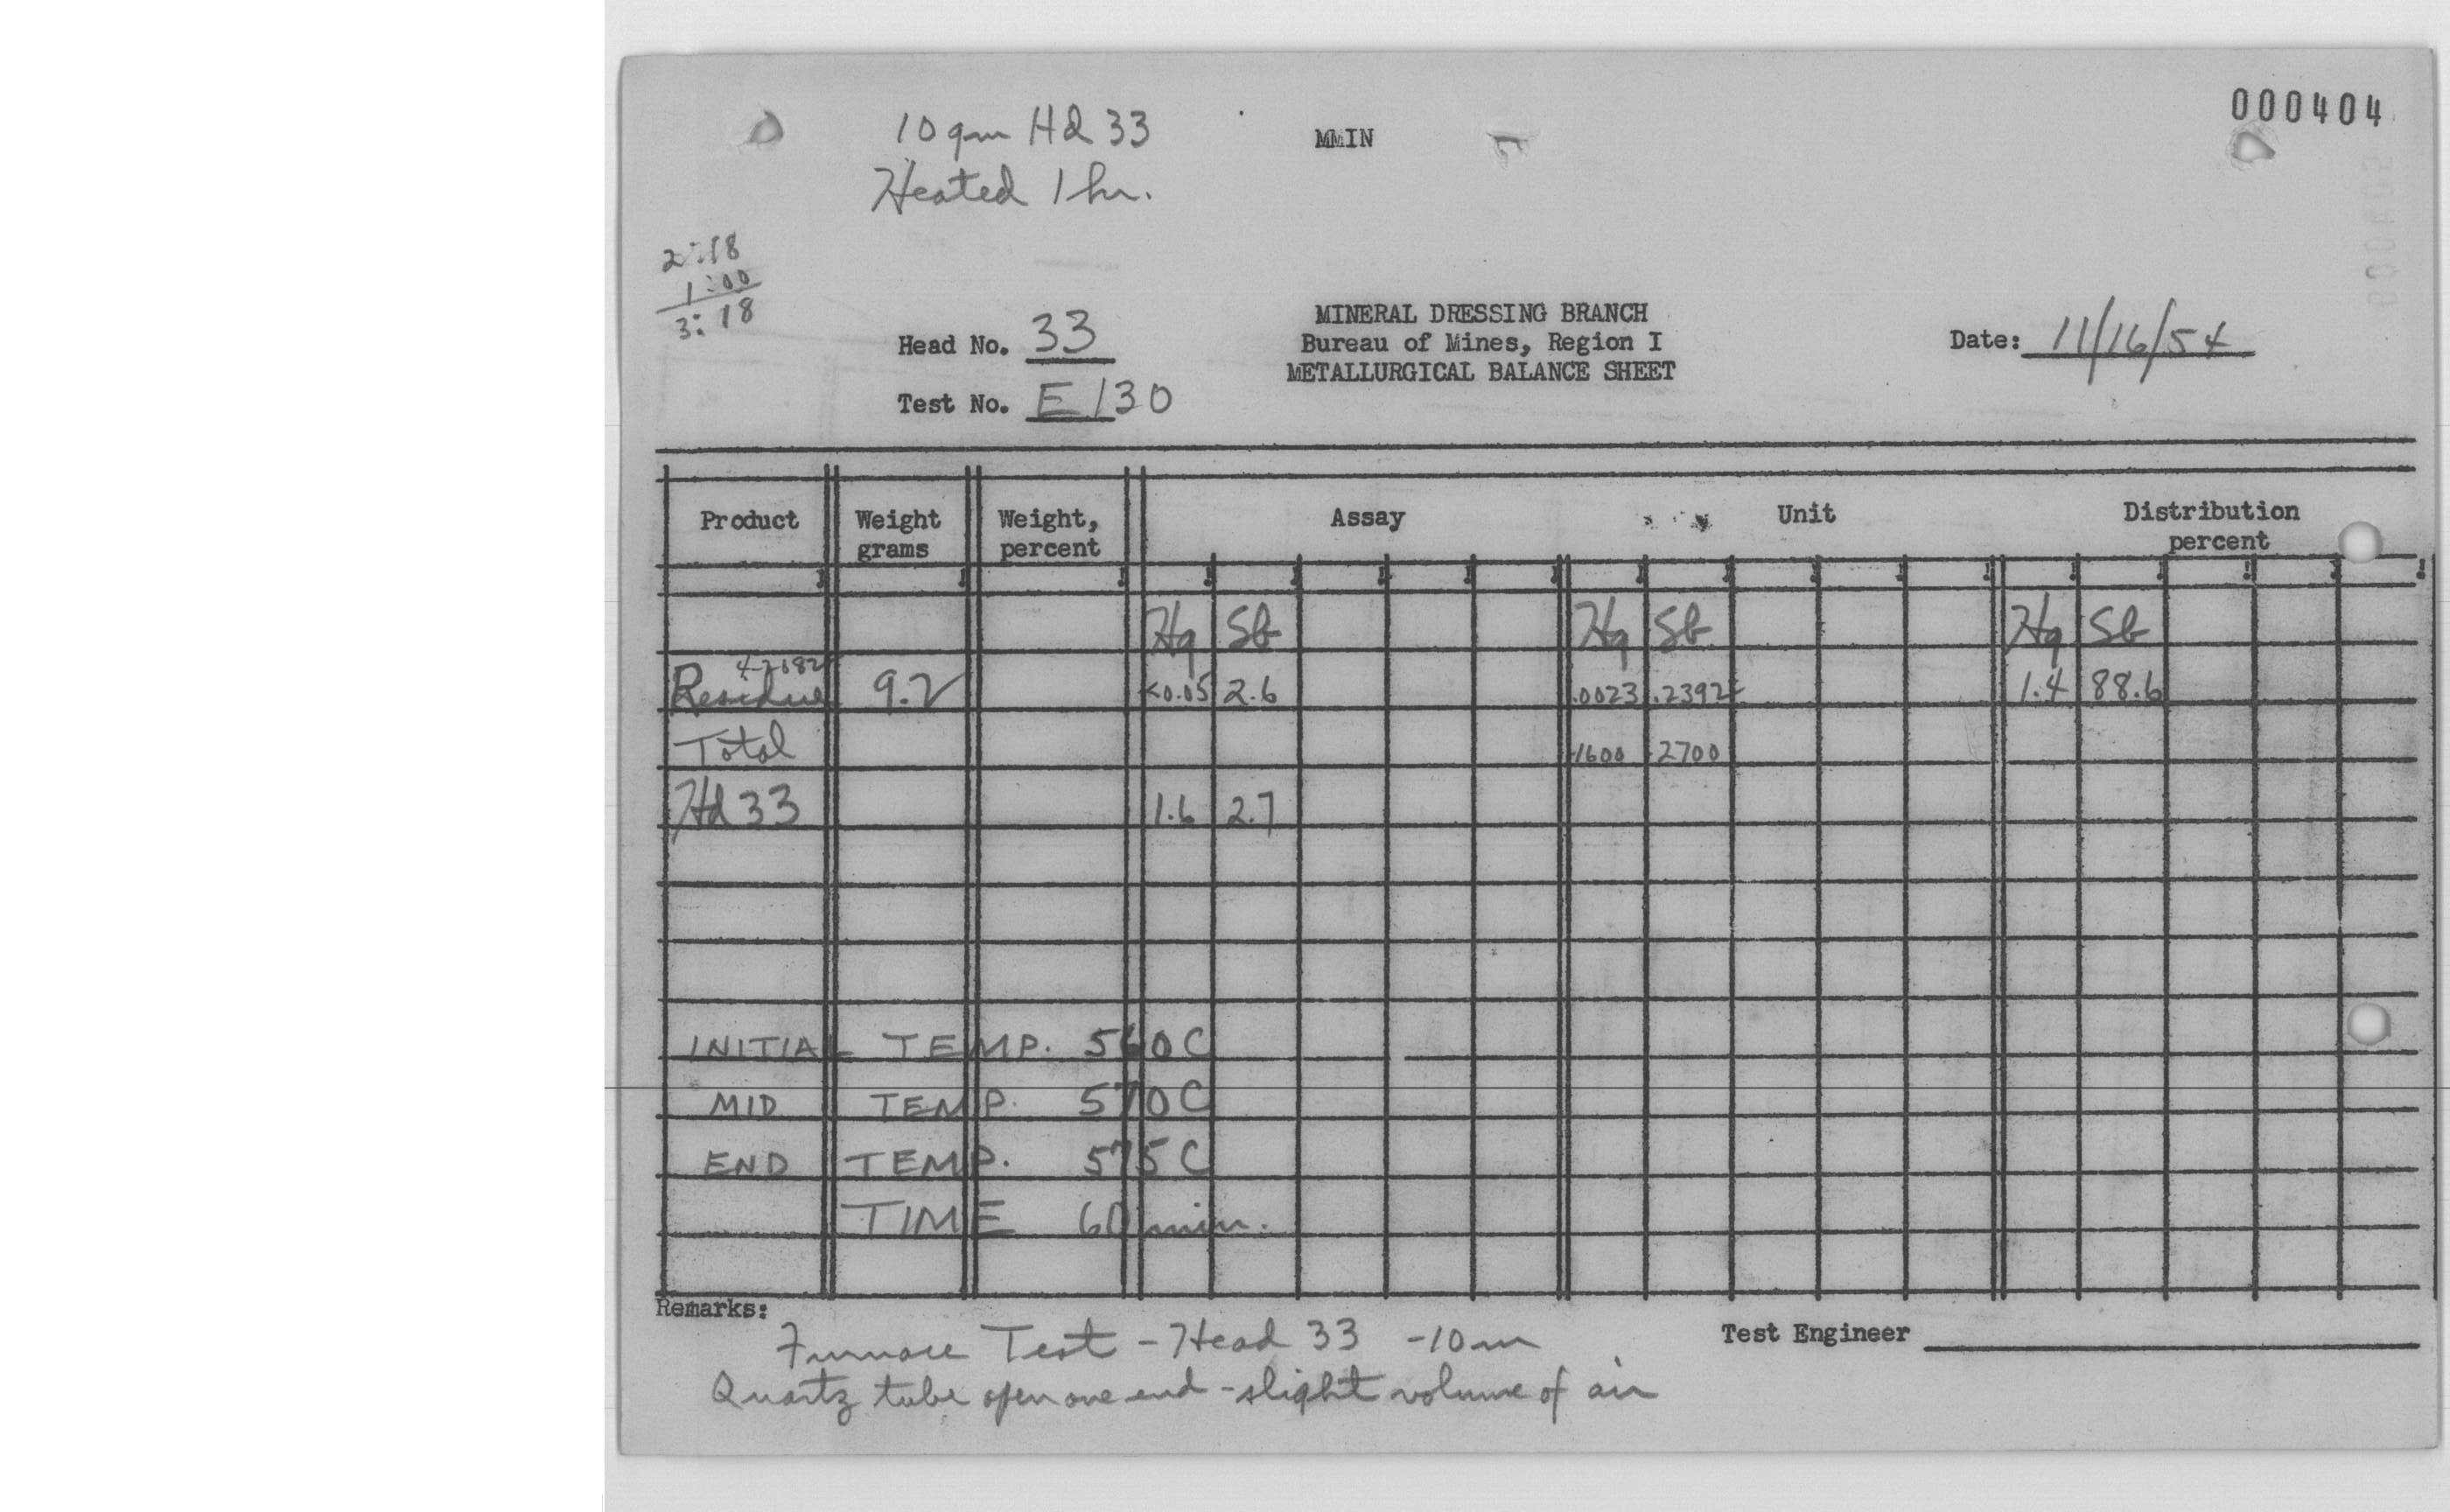 000404
10 gm Hd 33
MMIN
Heated 1 hr.
2:18
1:00
3:18
Head No. 33
Test No. E130
MINERAL DRESSING BRANCH
Bureau of Mines, Region I
METALLURGICAL BALANCE SHEET
Date: 11/16/54
Product Weight grams Weight, percent Assay Unit Distribution percent
Hg Sb Hg Sb Hg Sb
Residue 9.2 <0.05 2.6 .0023 .2392 1.4 88.6
Total .1600 .2700
Hd 33 1.6 2.7
INITIAL TEMP. 560 C
MID TEMP. 570 C
END TEMP. 575 C
TIME 60 min.
Remarks:
Furnace Test - Head 33 -10m
Test Engineer
Quartz tube open one end - slight volume of air